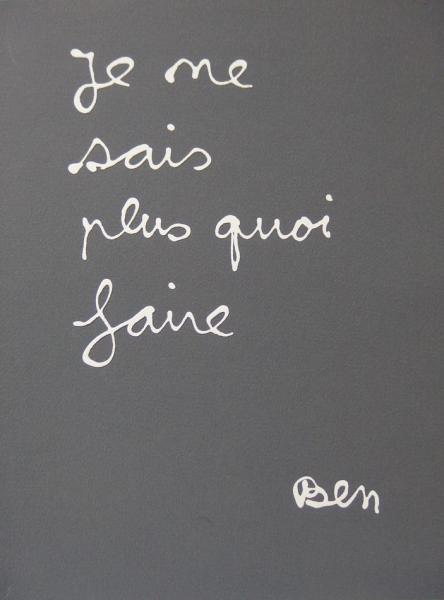 Je ne
sais
plus quoi
faire
Ben